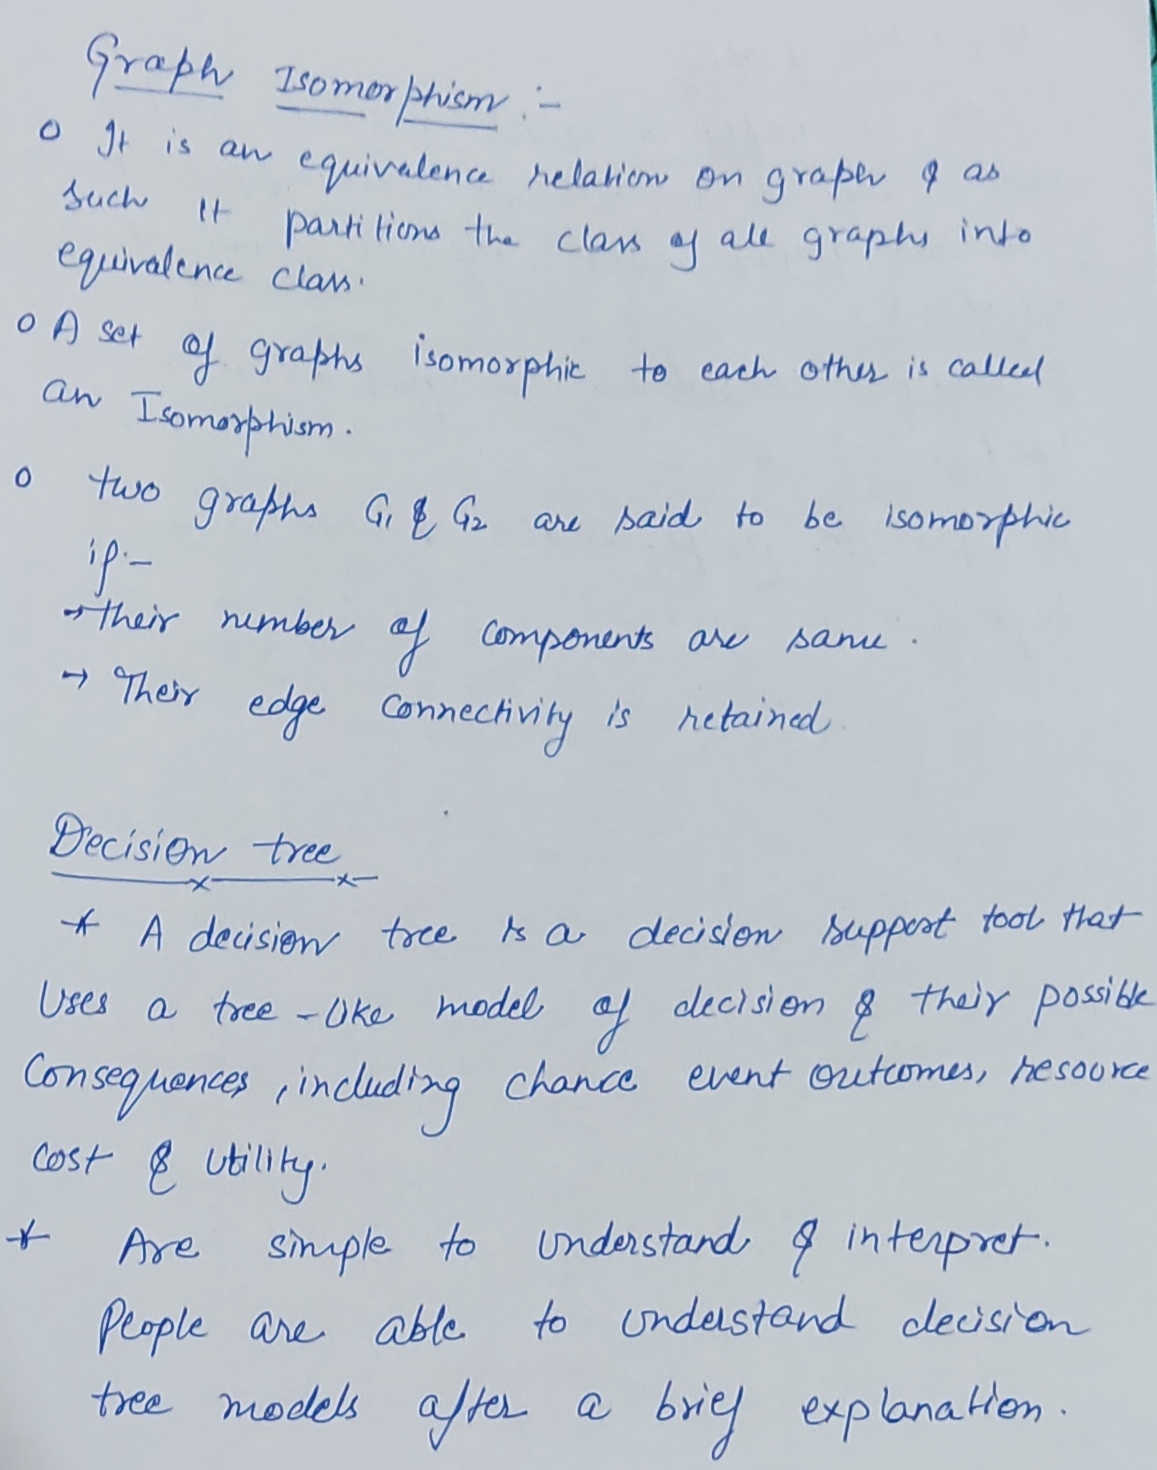 Graph Isomorphism :-
o It is an equivalence relation on graph & as
such it partitions the class of all graphs into
equivalence class.
o A set of graphs isomorphic to each other is called
an Isomorphism.
o two graphs G1 & G2 are said to be isomorphic
if:-
→ their number of components are same.
→ Their edge connectivity is retained
Decision tree
* A decision tree is a decision support tool that
Uses a tree-like model of decision & their possible
Consequences, including chance event outcomes, resource
cost & utility.
* Are simple to understand & interpret.
People are able to understand decision
tree models after a brief explanation.